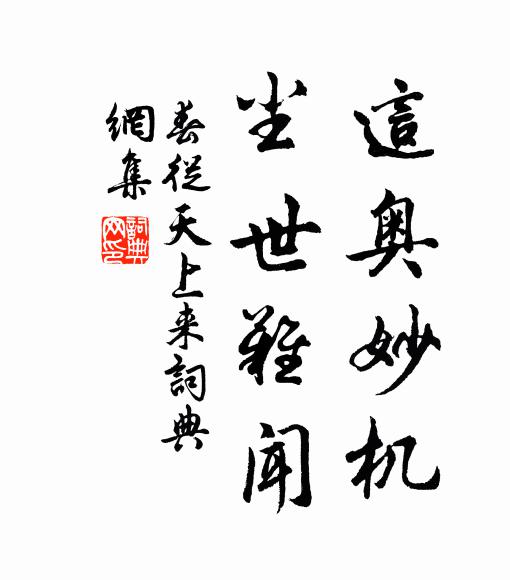 這奥妙机
尘世難聞
春從天上来詞典
網集
詞典
网印